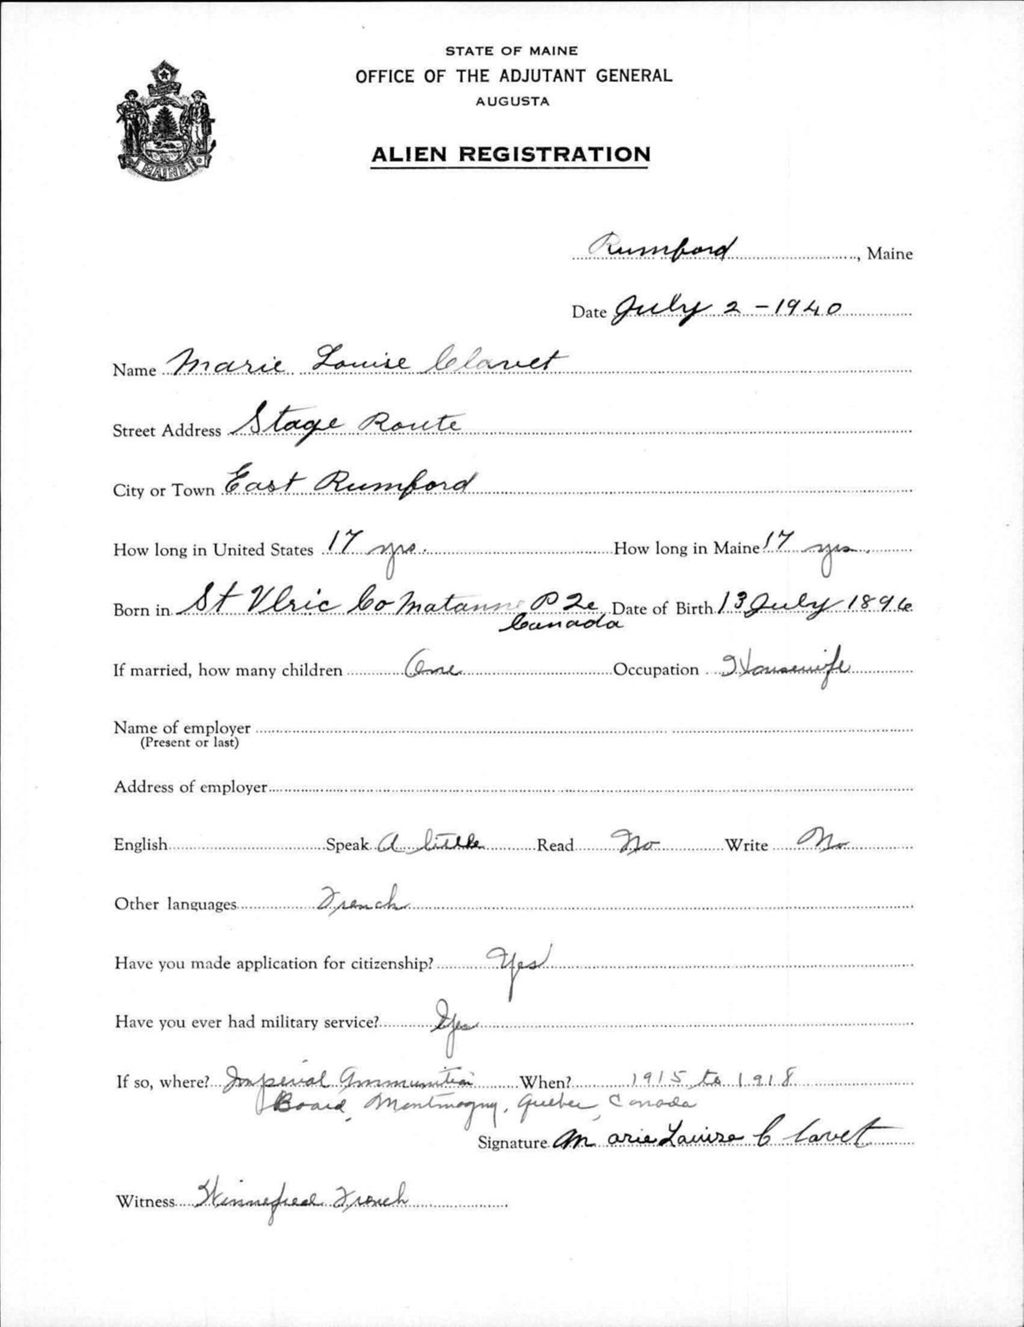 STATE OF MAINE
OFFICE OF THE ADJUTANT GENERAL
AUGUSTA
ALIEN REGISTRATION
MAINE
Rumford, Maine
Date July 2 - 1940
Name Marie Louise Clavet
Street Address Stage Route
City or Town East Rumford
How long in United States 17 yrs. How long in Maine 17 yrs.
Born in St Ulric Co Matane P Qe Date of Birth 13 July 1896
Canada
If married, how many children One Occupation Housewife
Name of employer
(Present or last)
Address of employer
English Speak A little Read No Write No
Other languages French
Have you made application for citizenship? Yes
Have you ever had military service? Yes
If so, where? Imperial Ammunition When? 1915 to 1918
Board, Montmagny, Quebec, Canada
Signature Marie Louise Clavet
Witness Winnefred French